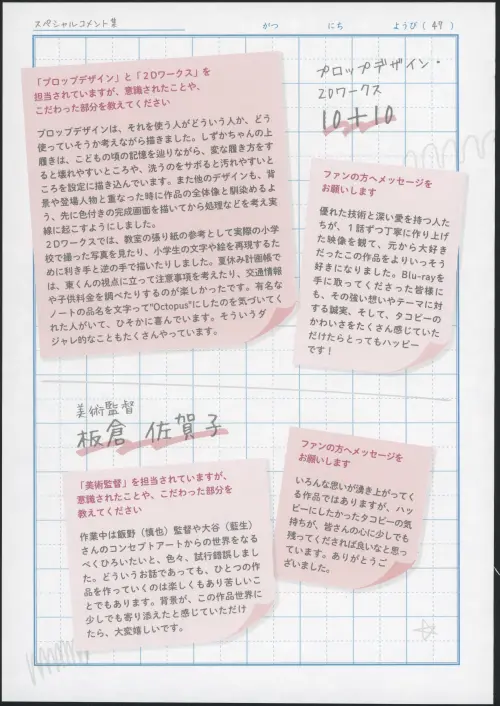 スペシャルコメント集
がつ にち ようび(47)
プロップデザイン・
2Dワークス
10+10
「プロップデザイン」と「2Dワークス」を
担当されていますが、意識されたことや、
こだわった部分を教えてください
プロップデザインは、それを使う人がどういう人か、どう
使っていそうか考えながら描きました。しずかちゃんの上
履きは、こどもの頃の記憶を辿りながら、変な履き方をす
ると壊れやすいところや、洗うのをサボると汚れやすいと
ころを設定に描き込んでいます。また他のデザインも、背
景や登場人物と重なった時に作品の全体像と馴染めるよ
う、先に色付きの完成画面を描いてから処理などを考え実
線に起こすようにしました。
2Dワークスでは、教室の張り紙の参考として実際の小学
校で撮った写真を見たり、小学生の文字や絵を再現するた
めに利き手と逆の手で描いたりしました。夏休み計画帳で
は、東くんの視点に立って注意事項を考えたり、交通情報
や子供料金を調べたりするのが楽しかったです。有名な
ノートの品名を文字って"Octopus"にしたのを気づいてく
れた人がいて、ひそかに喜んでいます。そういうダ
ジャレ的なこともたくさんやっています。
ファンの方へメッセージを
お願いします
優れた技術と深い愛を持つ人た
ちが、1話ずつ丁寧に作り上げ
た映像を観て、元から大好き
だったこの作品をよりいっそう
好きになりました。Blu-rayを
手に取ってくださった皆様に
も、その強い想いやテーマに対
する誠実、そして、タコピーの
かわいさをたくさん感じていた
だけたらとってもハッピー
です!
美術監督
板倉 佐賀子
「美術監督」を担当されていますが、
意識されたことや、こだわった部分を
教えてください
作業中は飯野(慎也)監督や大谷(藍生)
さんのコンセプトアートからの世界をなる
べくひろいたいと、色々、試行錯誤しまし
た。どういうお話であっても、ひとつの作
品を作っていくのは楽しくもあり苦しいこ
とでもあります。背景が、この作品世界に
少しでも寄り添えたと感じていただけ
たら、大変嬉しいです。
ファンの方へメッセージを
お願いします
いろんな思いが湧き上がってく
る作品ではありますが、ハッ
ピーにしたかったタコピーの気
持ちが、皆さんの心に少しでも
残ってくだされば良いなと思っ
ています。ありがとうご
ざいました。